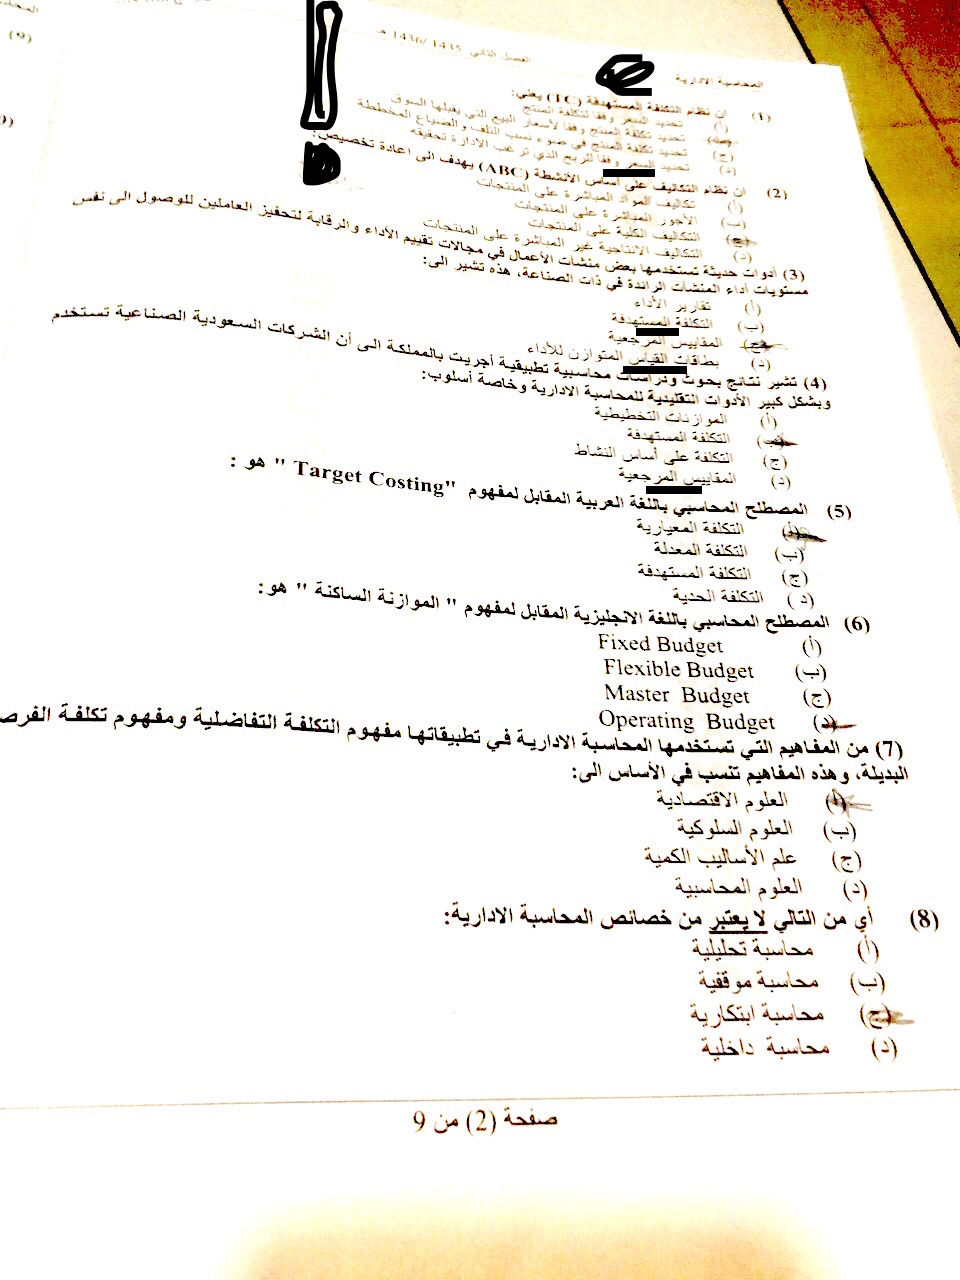 المحاسبة الادارية
الفصل الثاني 1435 /1436 هـ
(1) ان نظام التكلفة المستهدفة (TC) يعني:
(أ) تحديد السعر وفقا لتكلفة المنتج
(ب) تحديد تكلفة المنتج وفقا لأسعار البيع التي يقبلها السوق
(ج) تحديد تكلفة المنتج في ضوء نسب التلف و الضياع المخططة
(د) تحديد السعر وفقا للربح الذي ترغب الادارة تحقيقه
(2) ان نظام التكاليف على أساس الأنشطة (ABC) يهدف الى اعادة تخصيص:
(أ) تكاليف المواد المباشرة على المنتجات
(ب) الأجور المباشرة على المنتجات
(ج) التكاليف الكلية على المنتجات
(د) التكاليف الانتاجية غير المباشرة على المنتجات
(3) أدوات حديثة تستخدمها بعض منشآت الأعمال في مجالات تقييم الأداء والرقابة لتحفيز العاملين للوصول الى نفس
مستويات أداء المنشآت الرائدة في ذات الصناعة، هذه تشير الى:
(أ) تقارير الأداء
(ب) التكلفة المستهدفة
(ج) المقاييس المرجعية
(د) بطاقات القياس المتوازن للأداء
(4) تشير نتائج بحوث ودراسات محاسبية تطبيقية أجريت بالمملكة الى أن الشركات السعودية الصناعية تستخدم
وبشكل كبير الأدوات التقليدية للمحاسبة الادارية وخاصة أسلوب:
(أ) الموازنات التخطيطية
(ب) التكلفة المستهدفة
(ج) التكلفة على أساس النشاط
(د) المقاييس المرجعية
(5) المصطلح المحاسبي باللغة العربية المقابل لمفهوم "Target Costing " هو :
(أ) التكلفة المعيارية
(ب) التكلفة المعدلة
(ج) التكلفة المستهدفة
(د ) التكلفة الحدية
(6) المصطلح المحاسبي باللغة الانجليزية المقابل لمفهوم " الموازنة الساكنة " هو:
(أ) Fixed Budget
(ب) Flexible Budget
(ج) Master Budget
(د) Operating Budget
(7) من المفاهيم التي تستخدمها المحاسبة الادارية في تطبيقاتها مفهوم التكلفة التفاضلية ومفهوم تكلفة الفرص
البديلة، وهذه المفاهيم تنسب في الأساس الى:
(أ) العلوم الاقتصادية
(ب) العلوم السلوكية
(ج) علم الأساليب الكمية
(د) العلوم المحاسبية
(8) أي من التالي لا يعتبر من خصائص المحاسبة الادارية:
(أ) محاسبة تحليلية
(ب) محاسبة موقفية
(ج) محاسبة ابتكارية
(د) محاسبة داخلية
صفحة (2) من 9